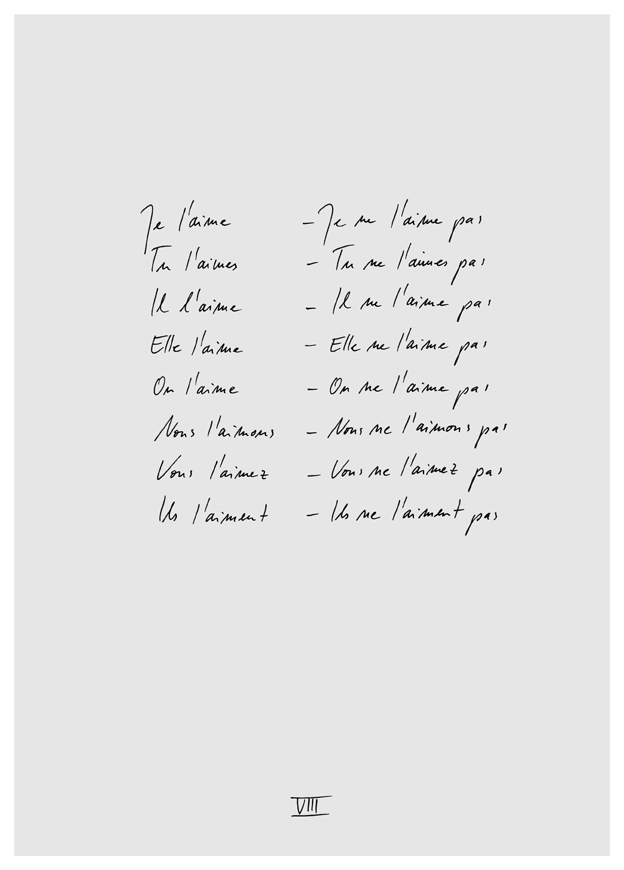 Je l'aime – Je ne l'aime pas
Tu l'aimes – Tu ne l'aimes pas
Il l'aime – Il ne l'aime pas
Elle l'aime – Elle ne l'aime pas
On l'aime – On ne l'aime pas
Nous l'aimons – Nous ne l'aimons pas
Vous l'aimez – Vous ne l'aimez pas
Ils l'aiment – Ils ne l'aiment pas
VIII